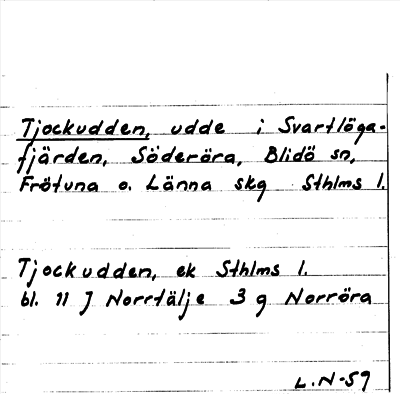 Tjockudden, udde i Svartlöga-
fjärden, Söderöra, Blidö sn,
Frötuna o. Länna skg Sthlms l.
Tjockudden, ek Sthlms l.
bl. 11 J Norrtälje 3 g Norröra
L.N-59